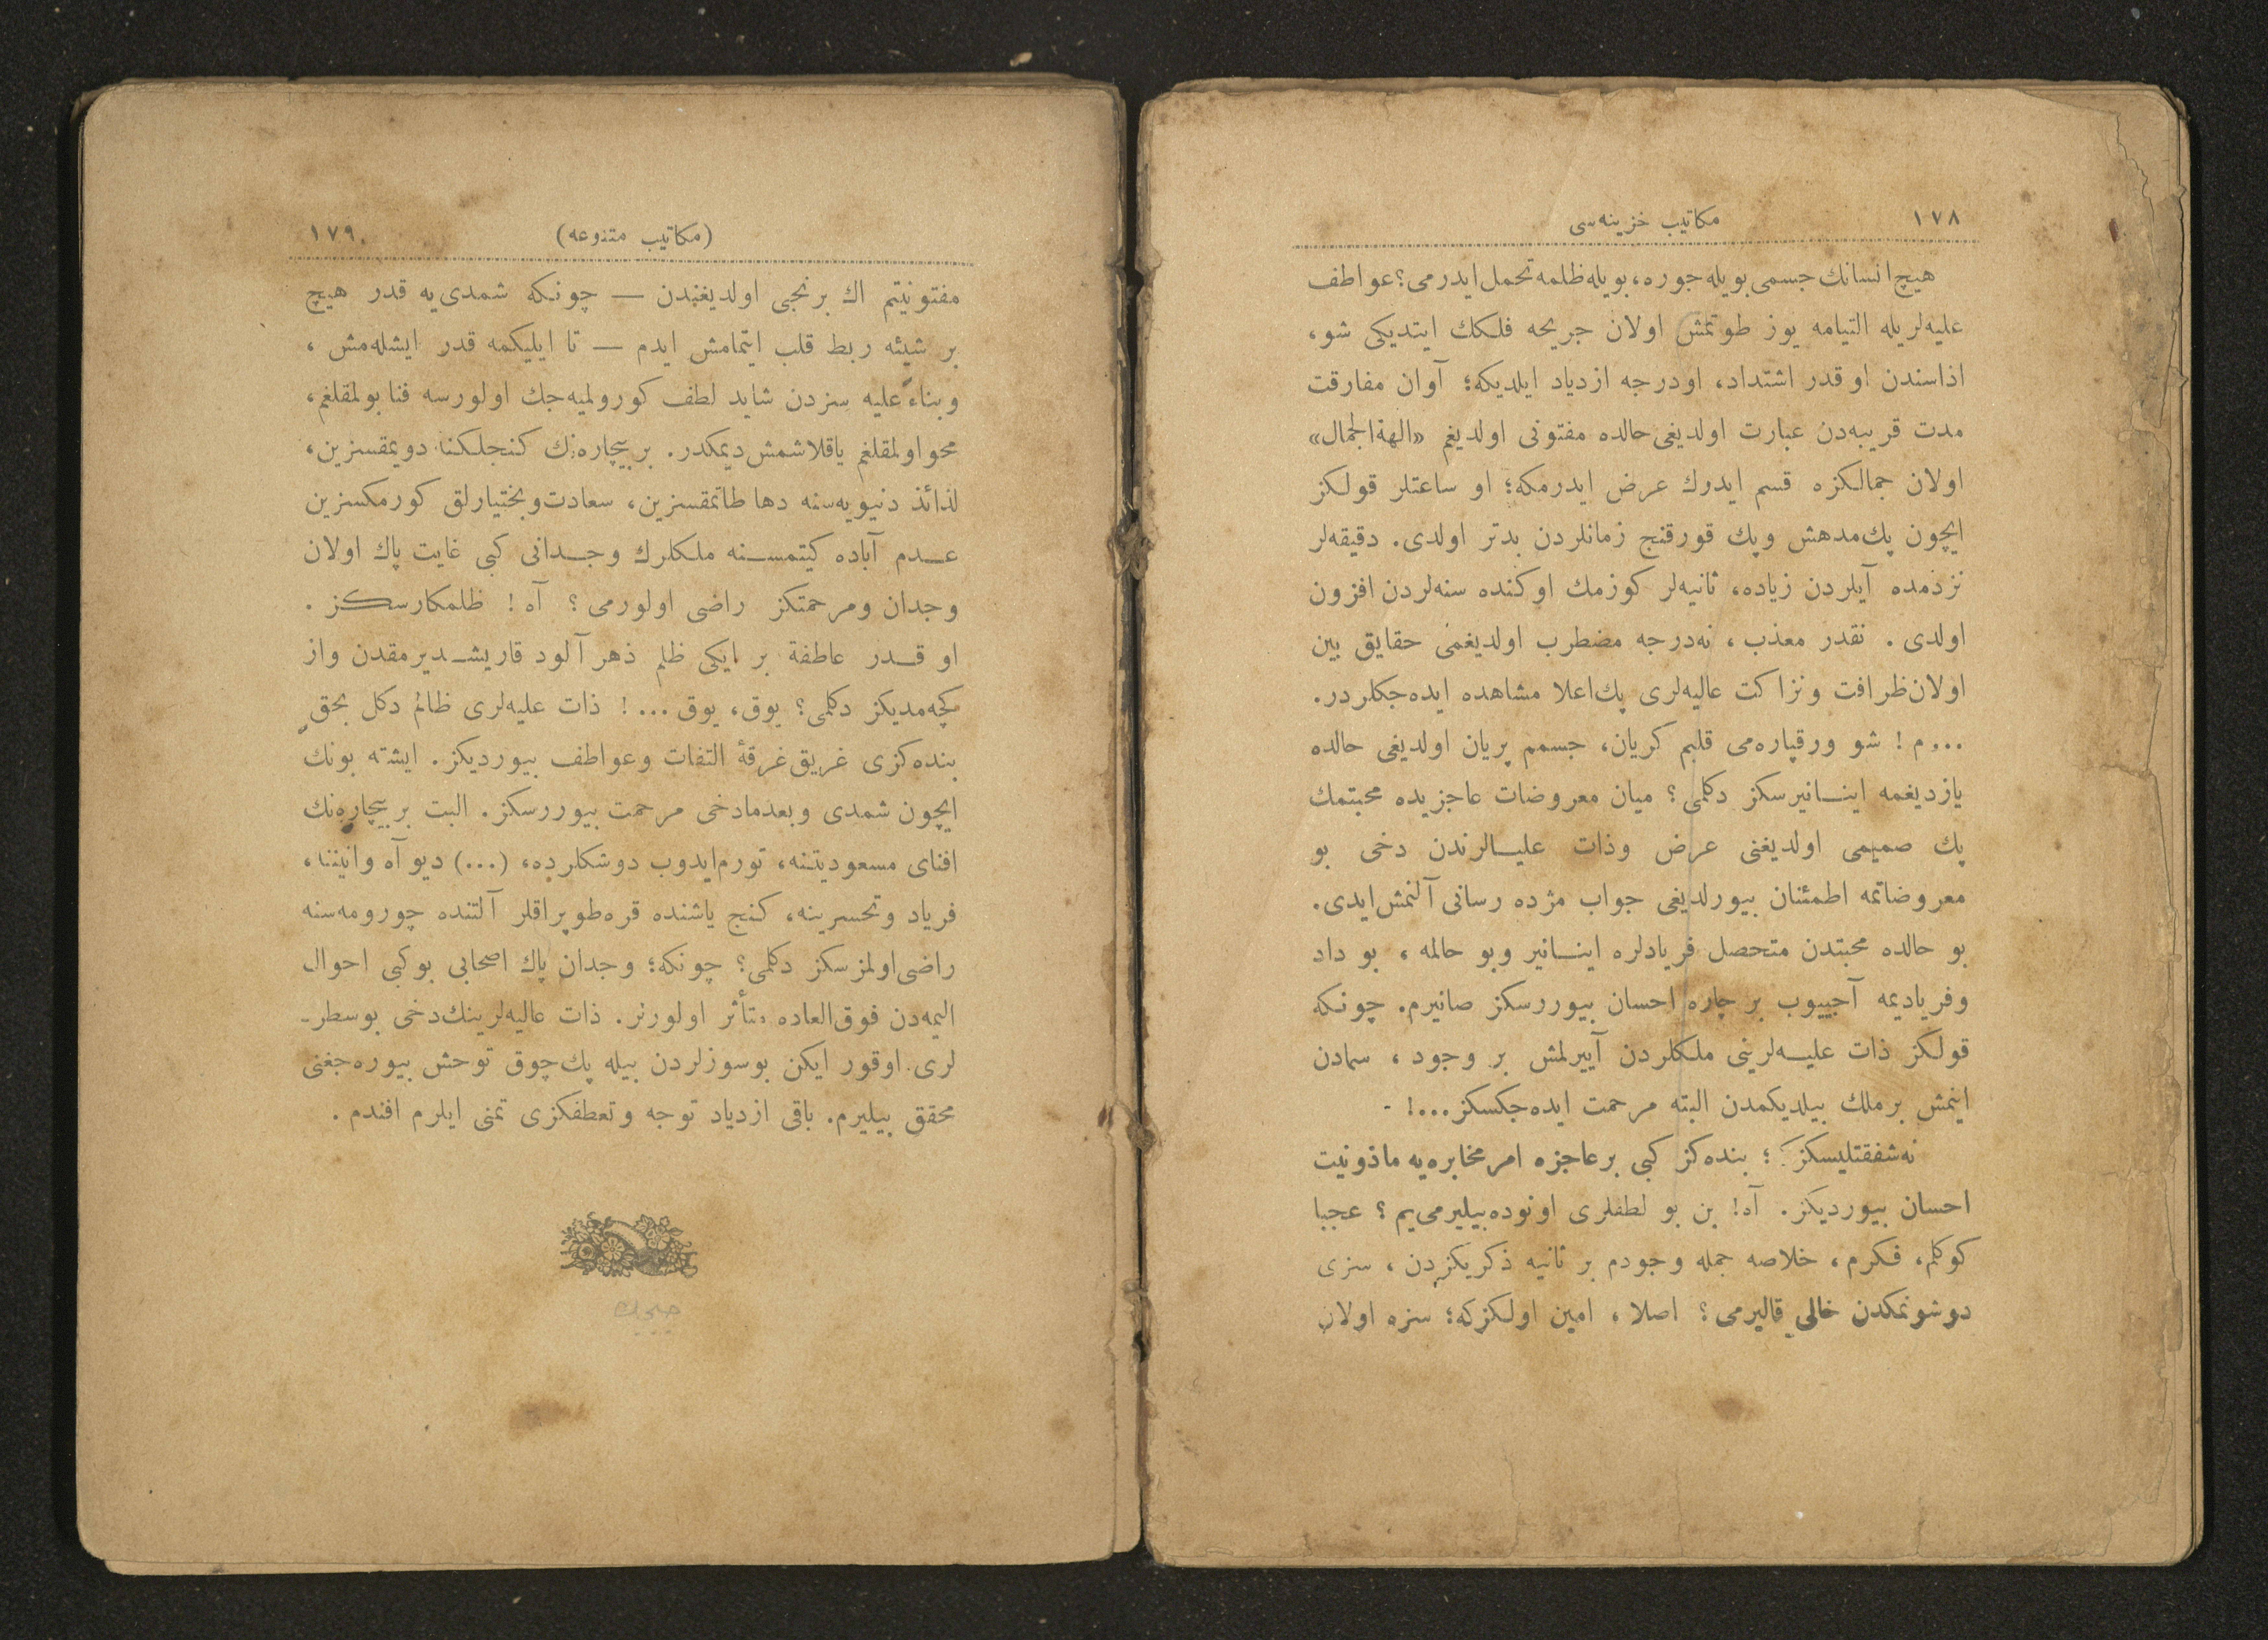 ١٧٨
مكاتیب خزینه‌سی
هیچ انسانك جسمی بویله جوره، بویله ظلمه تحمل ایدرمی؟ عواطف
علیه‌لریله التیامه یوز طوتمش اولان جریحه فلكك ایتدیكی شو،
اذاسندن او قدر اشتداد، اودرجه ازدیاد ایلدیكه؛ آوان مفارقت
مدت قریبه‌دن عبارت اولدیغی حالده مفتونی اولدیغم «الهة‌الجمال»
اولان جمالكزه قسم ایدرك عرض ایدرمكه؛ او ساعتلر قولكز
ایچون پك‌مدهش وپك قورقنج زمانلردن بدتر اولدی. دقیقه‌لر
نزدمده آیلردن زیاده، ثانیه‌لر كوزمك اوكنده سنه‌لردن افزون
اولدی. نقدر معذب، نه‌درجه مضطرب اولدیغمی حقایق بین
اولان ظرافت ونزاكت عالیه‌لری پك‌اعلا مشاهده ایده‌جكلردر.
...م! شو ورقپاره‌می قلبم كریان، جسمم پریان اولدیغی حالده
یازدیغمه اینانیرسكز دكلمی؟ میان معروضات عاجزیده محبتمك
پك صمیمی اولدیغنی عرض وذات علیالرندن دخی بو
معروضاتمه اطمئنان بیورلدیغی جواب مژده رسانی آلنمش‌ایدی.
بو حالده محبتدن متحصل فریادلره اینانیر وبو حالمه، بو داد
وفریادیمه آجییوب بر چاره احسان بیوررسكز صانیرم. چونكه
قولكز ذات علیه‌لرینی ملكلردن آییرلمش بر وجود، سمادن
اینمش برملك بیلدیكمدن البته مرحمت ایده‌جكسكز...! -
نه‌شفقتلیسكز؛ بنده‌كز كبی برعاجزه امر مخابره‌یه ماذونیت
احسان بیوردیكز. آه! بن بو لطفلری اونوده‌بیلیرمی‌یم؟ عجبا
كوكلم، فكرم، خلاصه جمله وجودم بر ثانیه ذكریكزدن، سزی
دوشونمكدن خالی قالیرمی؟ اصلا، امین اولكزكه؛ سزه اولان
(مكاتیب متنوعه)
١٧٩
مفتونیتم اك برنجی اولدیغندن — چونكه شمدی‌یه قدر هیچ
بر شیئه ربط قلب ایتمامش ایدم — تا ایلیكمه قدر ایشله‌مش،
وبناءً علیه سزدن شاید لطف كورولمیه‌جك اولورسه فنا بولمقلغم،
محو اولمقلغم یاقلاشمش دیمكدر. بر بیچاره‌نك كنجلكنه دویمقسزین،
لذائذ دنیویه‌سنه دها طاتمقسزین، سعادت‌وبختیارلق كورمكسزین
عدم آباده كیتمسنه ملكلرك وجدانی كبی غایت پاك اولان
وجدان ومرحمتكز راضی اولورمی؟ آه! ظلمكارسكز.
او قدر عاطفة بر ایكی ظلم ذهر آلود قاریشدیرمقدن واز
كچه‌مدیكز دكلمی؟ یوق، یوق...! ذات علیه‌لری ظالم دكل بحق
بنده‌كزی غریق غرقهٔ التفات وعواطف بیوردیكز. ایشته بونك
ایچون شمدی وبعدمادخی مرحمت بیوررسكز. البت بر بیچاره‌نك
افنای مسعودیتنه، تورم‌ایدوب دوشكلرده، (...) دیو آه وانیننه،
فریاد وتحسرینه، كنج یاشنده قره‌طوپراقلر آلتنده چورومه‌سنه
راضی‌اولمزسكز دكلمی؟ چونكه؛ وجدان پاك اصحابی بوكبی احوال
الیمه‌دن فوق‌العاده متأثر اولورلر. ذات عالیه‌لرینك‌دخی بوسطر-
لری اوقور ایكن بوسوزلردن بیله پك‌چوق توحش بیوره‌جغنی
محقق بیلیرم. باقی ازدیاد توجه وتعطفكزی تمنی ایلرم افندم.